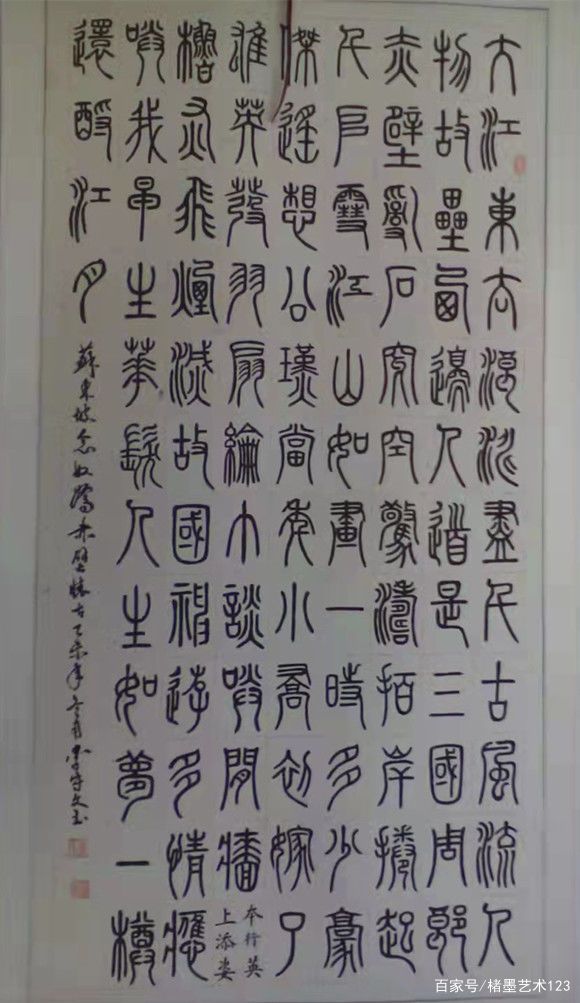 大江東去浪淘盡千古風流人
物故壘西邊人道是三國周郎
赤壁亂石穿空驚濤拍岸捲起
千堆雪江山如畫一時多少豪
傑遙想公瑾當年小喬初嫁了
雄英發羽扇綸巾談笑間檣
本行英
上添姿
櫓灰飛煙滅故國神遊多情應
笑我早生華髮人生如夢一樽
還酹江月
蘇東坡念奴嬌赤壁懷古乙未年冬月
百家号/楮墨艺术123